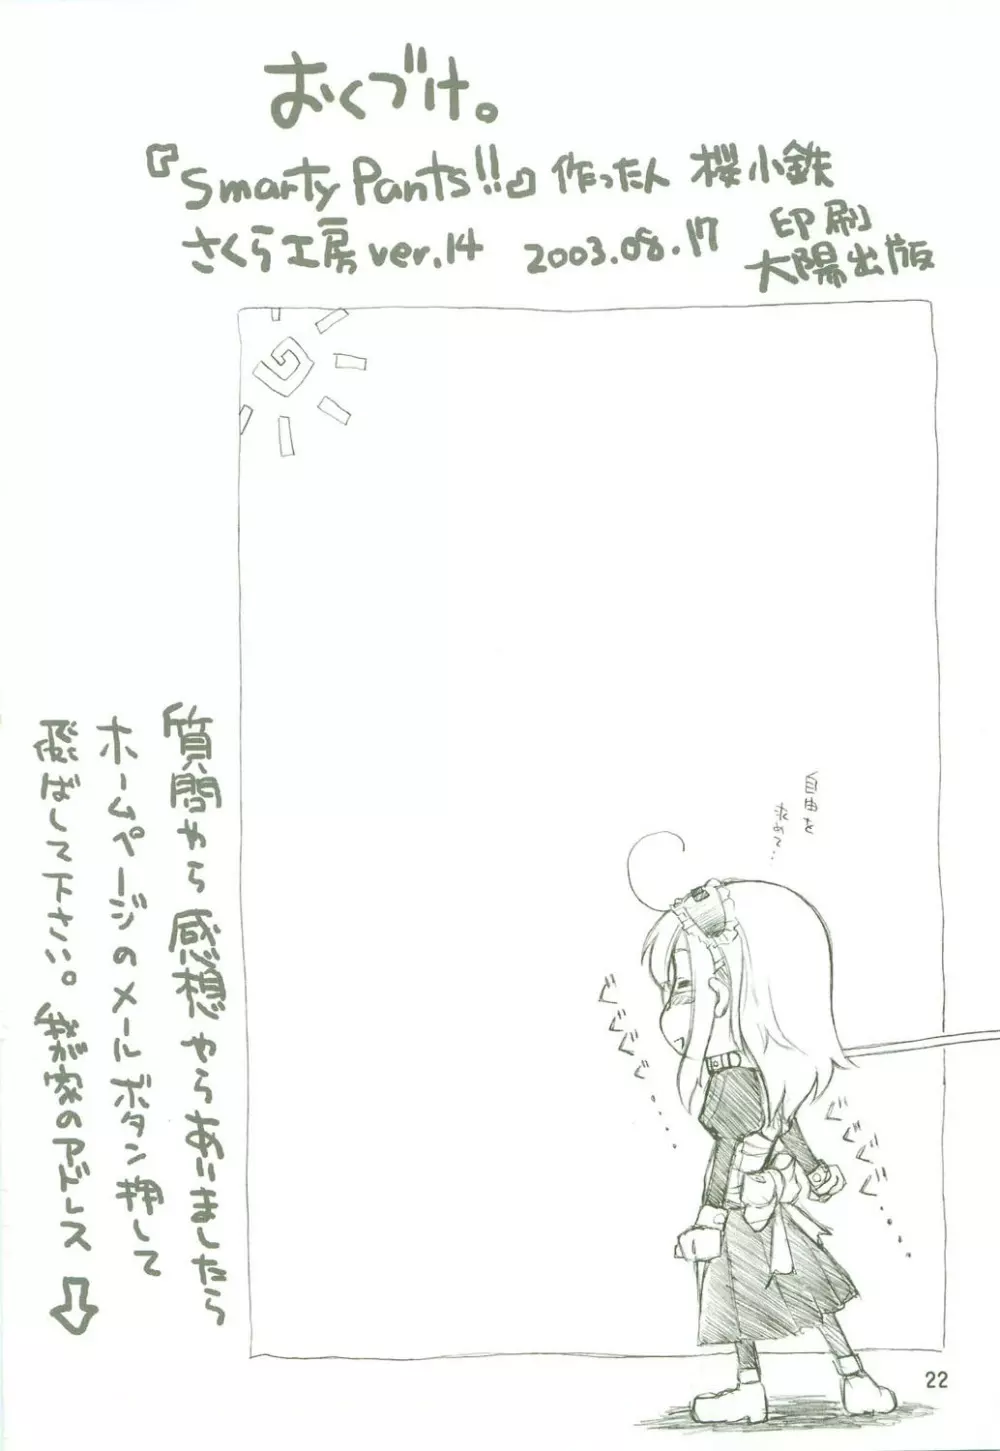 おくづけ。
『Smarty Pants!!』作ったん 桜小鉄
さくら工房 ver.14 2003.08.17 印刷
大陽出版
質問やら感想やらありましたら
ホームページのメールボタン押して
飛ばして下さい。我が家のアドレス
自由を
求めて…
ぐぐぐぐ…
ぐぐぐぐ…
22